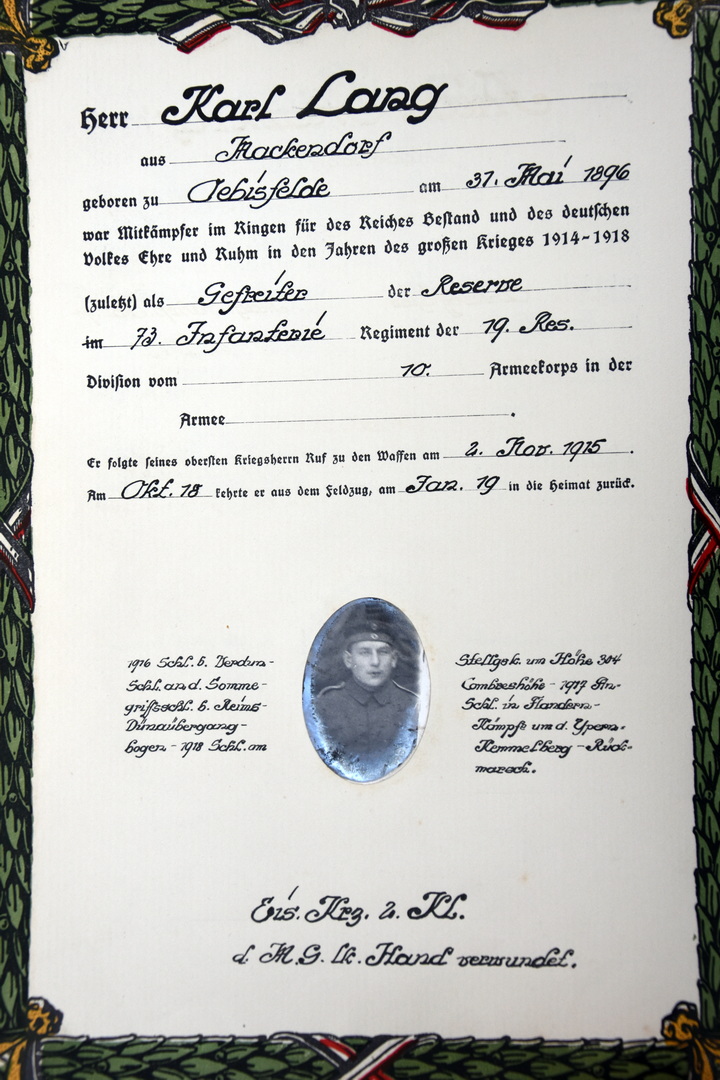 Herr Karl Lang
aus Mackendorf
geboren zu Oebisfelde am 31. Mai 1896
war Mitkämpfer im Ringen für des Reiches Bestand und des deutschen
Volkes Ehre und Ruhm in den Jahren des großen Krieges 1914-1918
(zuletzt) als Gefreiter der Reserve
im 73. Infanterie Regiment der 19. Res.
Division vom 10. Armeekorps in der
Armee .
Er folgte seines obersten Kriegsherrn Ruf zu den Waffen am 2. Nov. 1915 .
Am Okt. 18 kehrte er aus dem Feldzug, am Jan. 19 in die Heimat zurück.
1916 Schl. b. Verdun - Stellgsk. um Höhe 304
Schl. an d. Somme - Combreshöhe - 1917 An-
griffsschl. b. Reims - Schl. in Flandern -
Dünaübergang - Kämpfe um d. Ypern-
bogen - 1918 Schl. am Kemmelberg - Rück-
marsch.
Eis. Krz. 2. Kl.
d. M.G. lk. Hand verwundet.